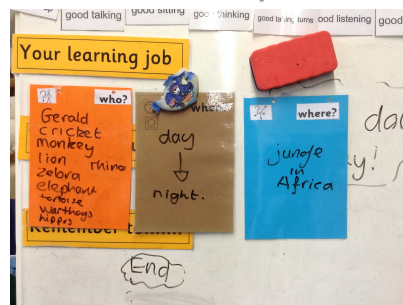 good talking good sitting good thinking good talking turns good listening good
Your learning job
who?
Gerald
cricket
monkey
lion rhino
zebra
elephant
tortoise
warthogs
hippos
day
night.
where?
jungle
in
Africa
day
y!
Remember
End